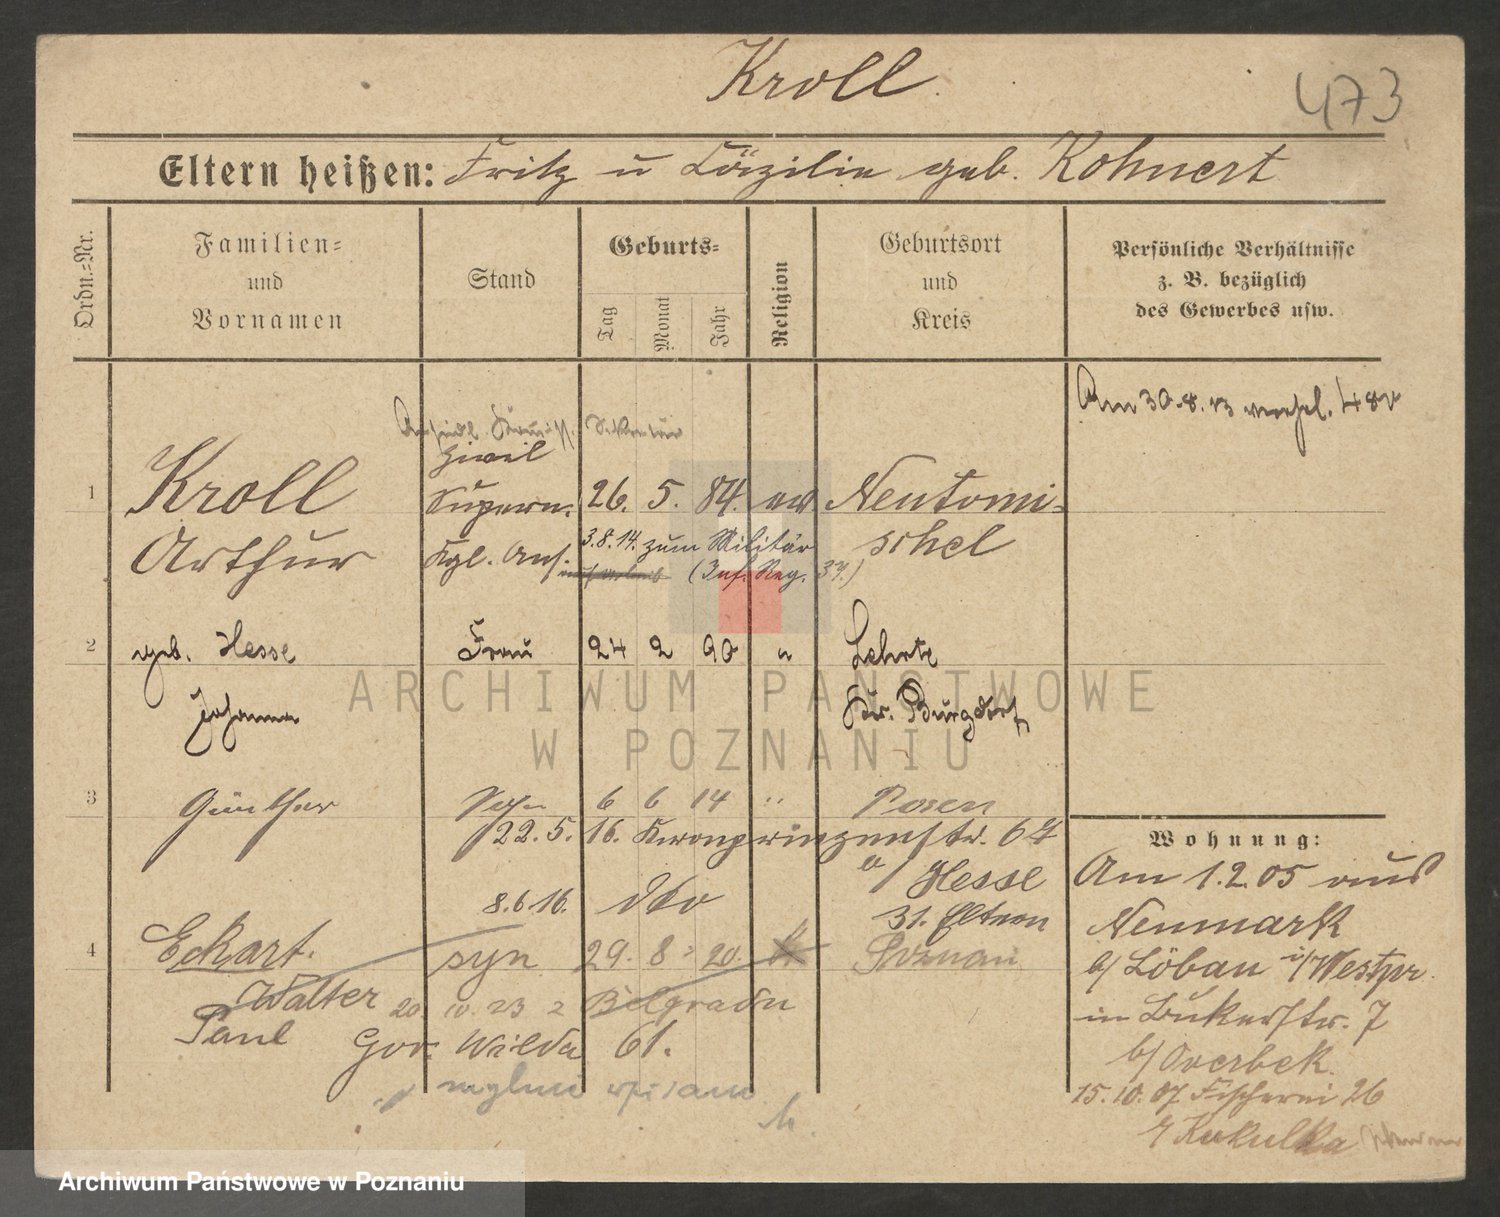 Kroll
473
Eltern heißen: Fritz u Cäzilie geb. Kohnert
Ordn.=Nr.
Familien= und Vornamen
Stand
Geburts=
Tag
Monat
Jahr
Religion
Geburtsort und Kreis
Persönliche Verhältnisse z. B. bezüglich des Gewerbes usw.
Am 30.8.13
Zivil
1 Kroll Supern. 26. 5. 84. ev Neutomi-
Arthur Kgl. Ans. 3.8.14. zum Militär schel
(Inf. Reg. 37.)
2 geb. Hesse Frau 24 2 90 " Lehrte
Johanna Kr. Burgdorf
3 Günther Sohn 6 6 14 " Posen
22.5.16. Kronprinzenstr. 67
b/ Hesse
8.6.16. dto 31. Eltern
4 Eckart. syn 29. 8. 20. Poznań
Walter 20. 10. 23 z Belgradu
Paul Gór. Wilda 61.
mylnie wpisane
Wohnung:
Am 1.2.05 aus
Neumark
b/ Löbau i/Westpr.
in Bukerstr. 7
b/ Overbek.
15.10.07 Fischerei 26
Kukulka
ARCHIWUM PAŃSTWOWE
W POZNANIU
Archiwum Państwowe w Poznaniu